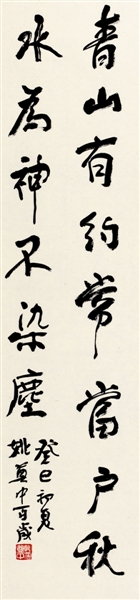 青山有约常当户秋
水为神不染尘
癸巳初夏
姚奠中百岁